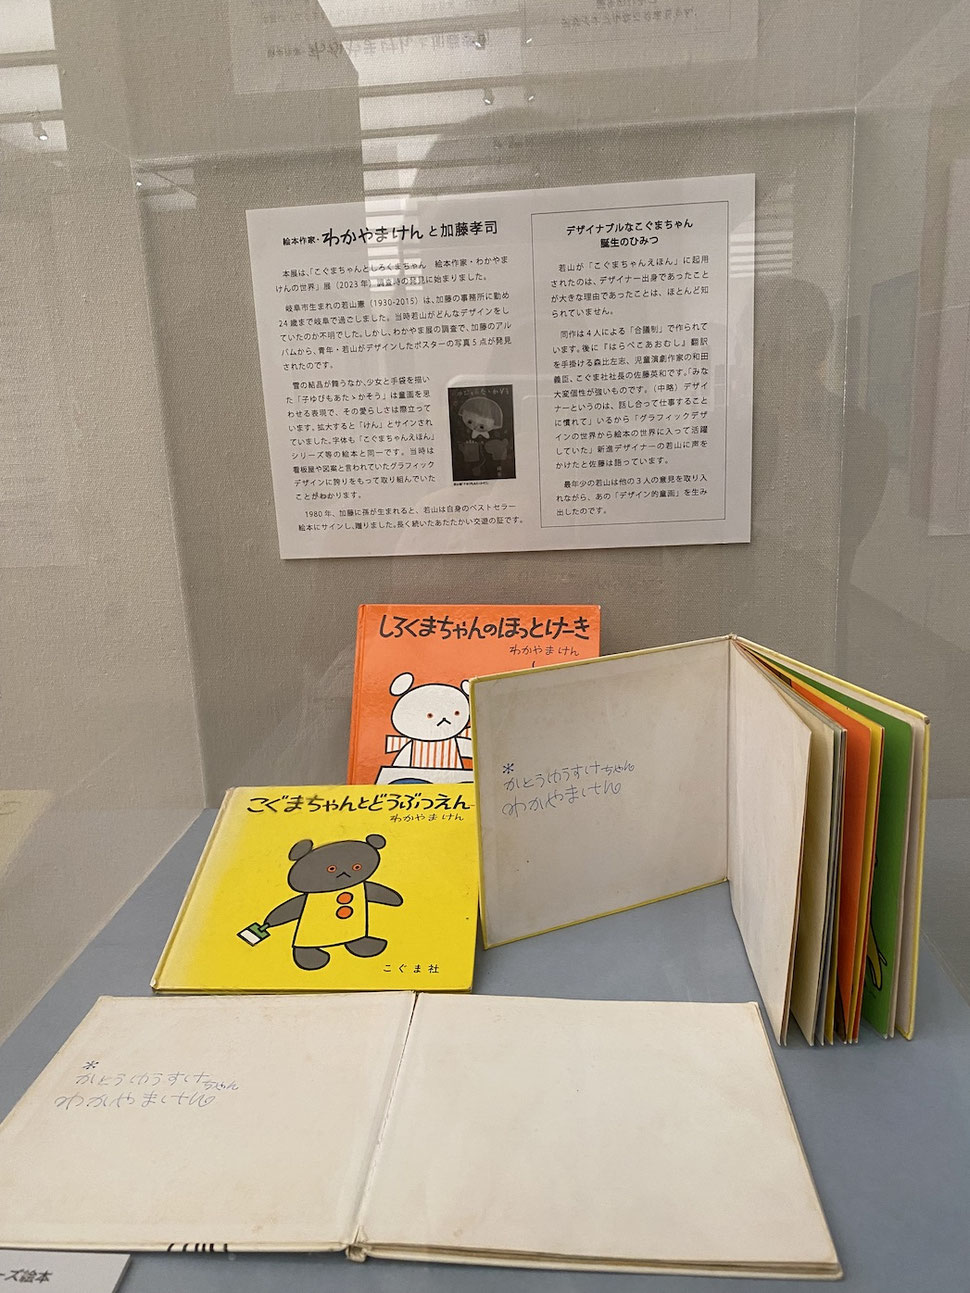 絵本作家・わかやまけんと加藤孝司
本展は、「こぐまちゃんとしろくまちゃん 絵本作家・わかやま
けんの世界」展（2023年）調査時の発見に始まりました。
岐阜市生まれの若山憲（1930-2015）は、加藤の事務所に勤め
24歳まで岐阜で過ごしました。当時若山がどんなデザインをし
ていたのか不明でした。しかし、わかやま展の調査で、加藤のアル
バムから、青年・若山がデザインしたポスターの写真5点が発見
されたのです。
雪の結晶が舞うなか、少女と手袋を描い
た「子ゆびもあたゝかそう」は童画を思
わせる表現で、その愛らしさは際立って
います。拡大すると「けん」とサインされ
ていました。字体も「こぐまちゃんえほん」
シリーズ等の絵本と同一です。当時は
看板屋や図案と言われていたグラフィック
デザインに誇りをもって取り組んでいた
ことがわかります。
1980年、加藤に孫が生まれると、若山は自身のベストセラー
絵本にサインし、贈りました。長く続いたあたたかい交遊の証です。
デザイナブルなこぐまちゃん
誕生のひみつ
若山が「こぐまちゃんえほん」に起用
されたのは、デザイナー出身であったこと
が大きな理由であったことは、ほとんど知
られていません。
同作は4人による「合議制」で作られて
います。後に『はらぺこあおむし』翻訳
を手掛ける森比左志、児童演劇作家の和田
義臣、こぐま社社長の佐藤英和です。「みな
大変個性が強いものです。（中略）デザイ
ナーというのは、話し合って仕事すること
に慣れて」いるから「グラフィックデザ
インの世界から絵本の世界に入って活躍
していた」新進デザイナーの若山に声を
かけたと佐藤は語っています。
最年少の若山は他の3人の意見を取り入
れながら、あの「デザイン的童画」を生み
出したのです。
しろくまちゃんのほっとけーき
わかやまけん
＊
かとうゆうすけちゃん
わかやまけん
こぐまちゃんとどうぶつえん
わかやまけん
こぐま社
＊
かとうゆうすけちゃん
わかやまけん
ーズ絵本